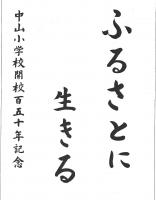 ふるさとに
生きる
中山小学校開校百五十年記念